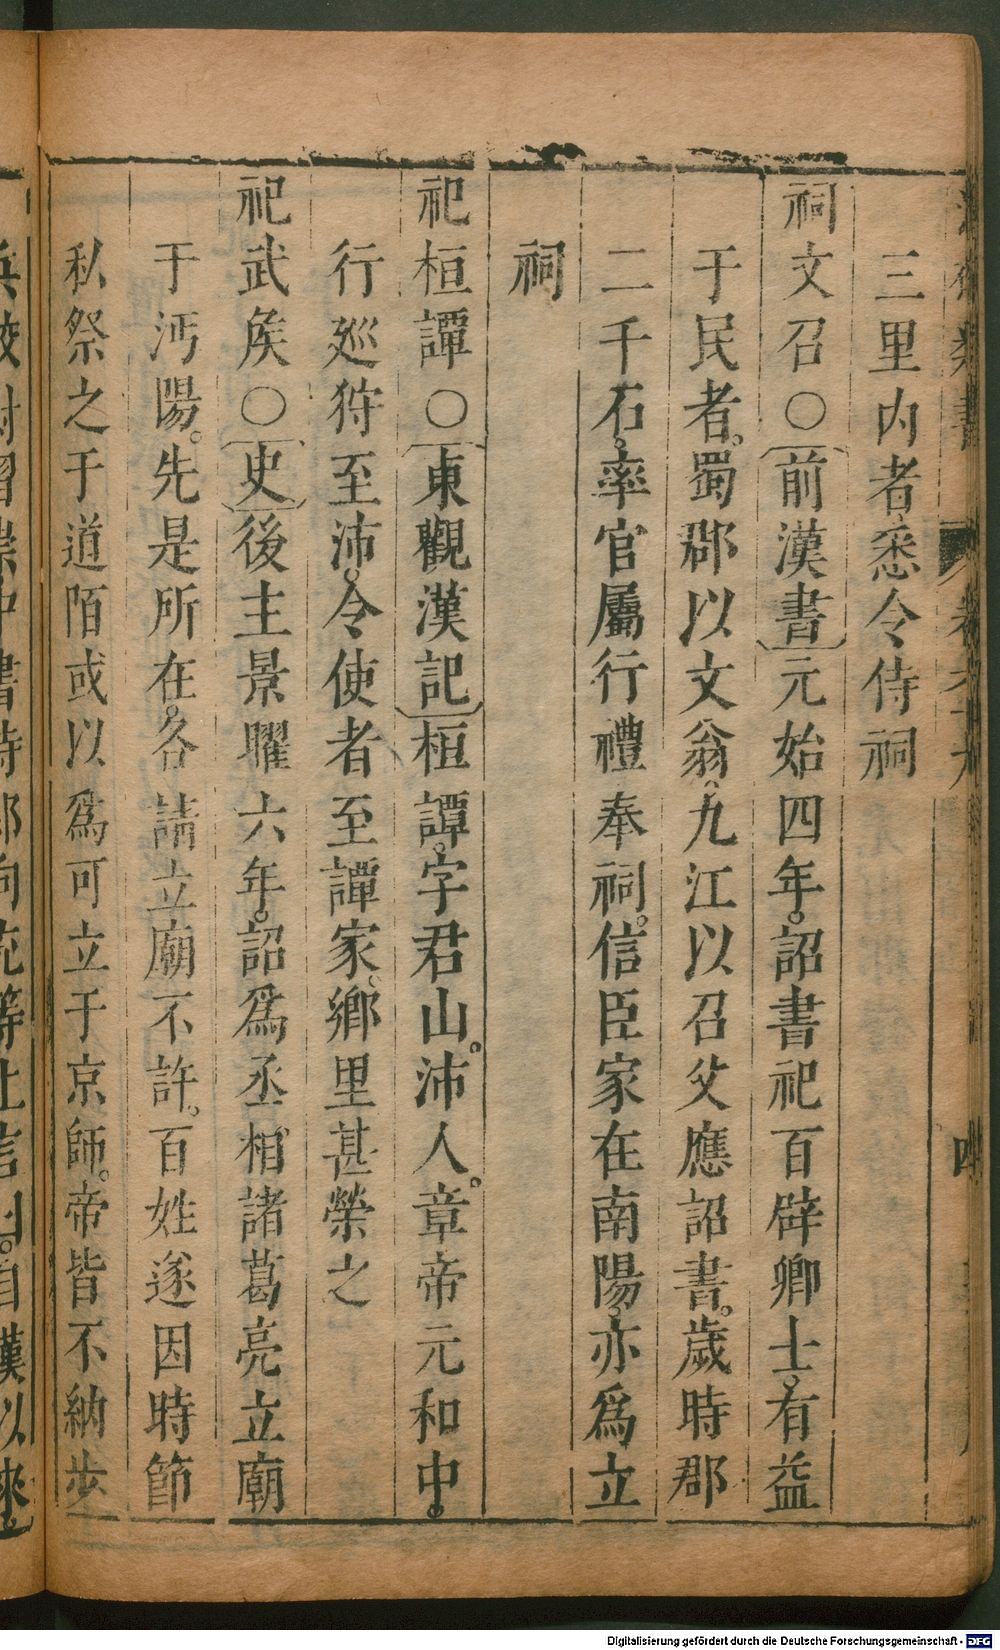 三里内者悉令侍祠
祠文召○〔前漢書〕元始四年。詔書祀百辟卿士。有益
于民者。蜀郡以文翁。九江以召父應詔書。歲時郡
二千石。率官屬行禮奉祠。信臣家在南陽。亦爲立
祠
祀桓譚○〔東觀漢記〕桓譚。字君山。沛人。章帝元和中。
行廵狩至沛。令使者至譚家。鄉里甚榮之
祀武矦○〔史〕後主景曜六年。詔爲丞相諸葛亮立廟
于沔陽。先是所在。各請立廟不許。百姓遂因時節
私祭之于道陌或以爲可立于京師。帝皆不納步
Digitalisierung gefördert durch die Deutsche Forschungsgemeinschaft - DFG